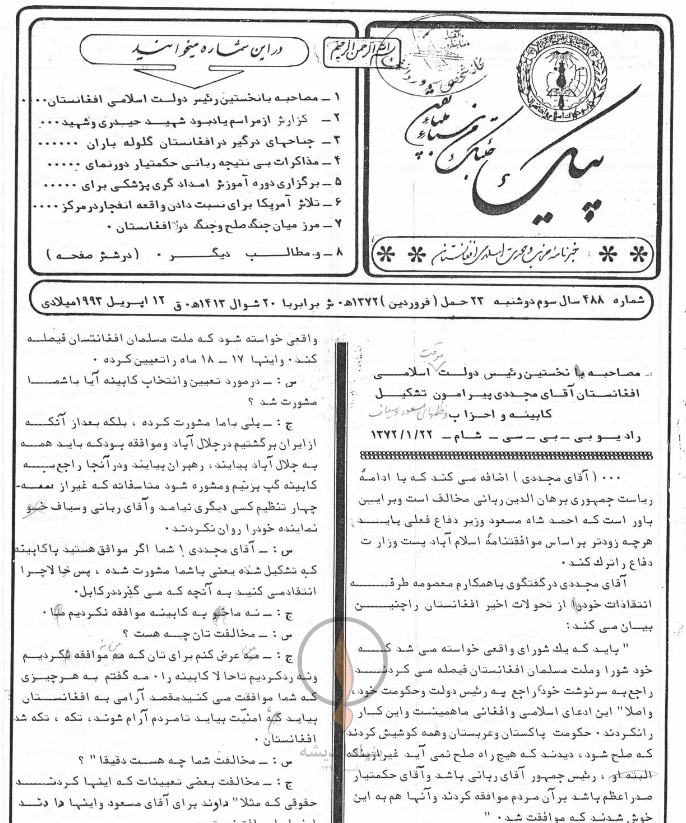 بسم الله الرحمن الرحیم
پیک
خبرنامه حزب وحدت اسلامی افغانستان
در این شماره میخوانید
۱ ــ مصاحبه با نخستین رئیس دولت اسلامی افغانستان....
۲ ــ گزارش از مراسم یادبود شهید حیدری و شهید ...
۳ ــ جناحهای درگیر در افغانستان گلوله باران ......
۴ ــ مذاکرات بی نتیجه ربانی حکمتیار دورنمای .....
۵ ــ برگزاری دوره آموزش امداد گری پزشکی برای .....
۶ ــ تلاش آمریکا برای نسبت دادن واقعه انفجار در مرکز ....
۷ ــ مرز میان جنگ صلح و جنگ در افغانستان .
۸ ــ و مطالب دیگر . (در شش صفحه)
شماره ۴۸۸ سال سوم دوشنبه ۲۳ حمل (فروردین) ۱۳۷۲ه. ش برابر با ۲۰ شوال ۱۴۱۳ه. ق ۱۲ اپریل ۱۹۹۳میلادی
ــ مصاحبه با نخستین رئیس دولت اسلامی
افغانستان آقای مجددی پیرامون تشکیل
کابینه و احزاب
رادیو بی ــ بی ــ سی ــ شام ــ ۱۳۷۲/۱/۲۲
... (آقای مجددی) اضافه می کند که با ادامهٔ
ریاست جمهوری برهان الدین ربانی مخالف است وبر این
باور است که احمد شاه مسعود وزیر دفاع فعلی بایــد
هرچه زودتر بر اساس موافقتنامهٔ اسلام آباد پست وزارت
دفاع را ترک کند .
آقای مجددی در گفتگوی با همکارم معصومه طرفــه
انتقادات خود از تحولات اخیر افغانستان را چنیــن
بیــان می کند :
" باید که یک شورای واقعی خواسته می شد کــه
خود شورا وملت مسلمان افغانستان فیصله می کردنــد
راجع به سرنوشت خود، راجع به رئیس دولت وحکومت خود،
واصلا" این ادعای اسلامــی وافغانی ماهمینست واین کــار
را نکردند . حکومت پاکستان وعربستان وهمه کوشیش کردند
که صلح شود ، دیدند که هیچ راه صلح نمی آید غیر ازینکه
البته او ، رئیس جمهور آقای ربانی باشد وآقای حکمتیار
صدراعظم باشد برآن مردم موافقه کردند وآنها هم به این
خوش شدند که موافقت شد . "
واقعی خواسته شود که ملت مسلمان افغانستان فیصلــه
کند . واینها ۱۷ ــ ۱۸ ماه را تعیین کرده .
س : ــ در مورد تعیین وانتخاب کابینه آیا با شمــا
مشورت شد ؟
ج : ــ بلی با ما مشورت کرده ، بلکه بعد از آنکــه
از ایران برگشتیم در جلال آباد وموافقه بود که باید همــه
به جلال آباد بیایند ، رهبران بیایند ودر آنجا راجع بــه
کابینه گپ بزنیم ومشوره شود متاسفانه که غیر از ســه-
چهار تنظیم کسی دیگری نیامد وآقای ربانی وسیاف خــو
نماینده خود را روان نکردند .
س : ــ آقای مجددی ! شما اگر موافق هستید با کابینه
که تشکیل شده یعنی با شما مشورت شده ، پس حالا چــرا
انتقاد می کنید به آنچه که می گذرد در کابل .
ج : ــ نه ماخو به کابینه موافقه نکردیم ما .
س : ــ مخالفت تان چــه هست ؟
ج : ــ عرض کنم برای تان که موافقه نکردیــم
ونه رد کردیم تا حالا کابینه را . مه گفتم به هرچیــزی
که شما موافقت می کنید مقصد آرامی به افغانستــان
بیاید امنیت بیاید تا مردم آرام شوند ، تکه ، تکه شد
افغانستان .
س : ــ مخالفت شما چــه هست دقیقا" ؟
ج : ــ مخالفت بعضی تعیینات که اینها کردنــد
حقوقی که مثلا" دادند برای آقای مسعود واینها دادنــد